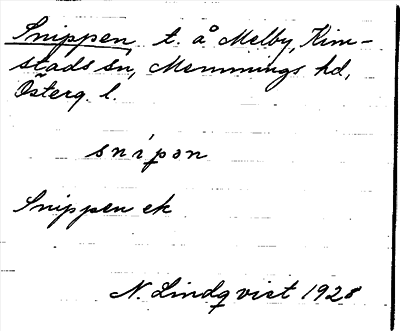 Snippen, t. å Melby, Kim-
stads sn, Memmings hd,
Österg. l.
snipən
Snippen ek
N. Lindqvist 1928